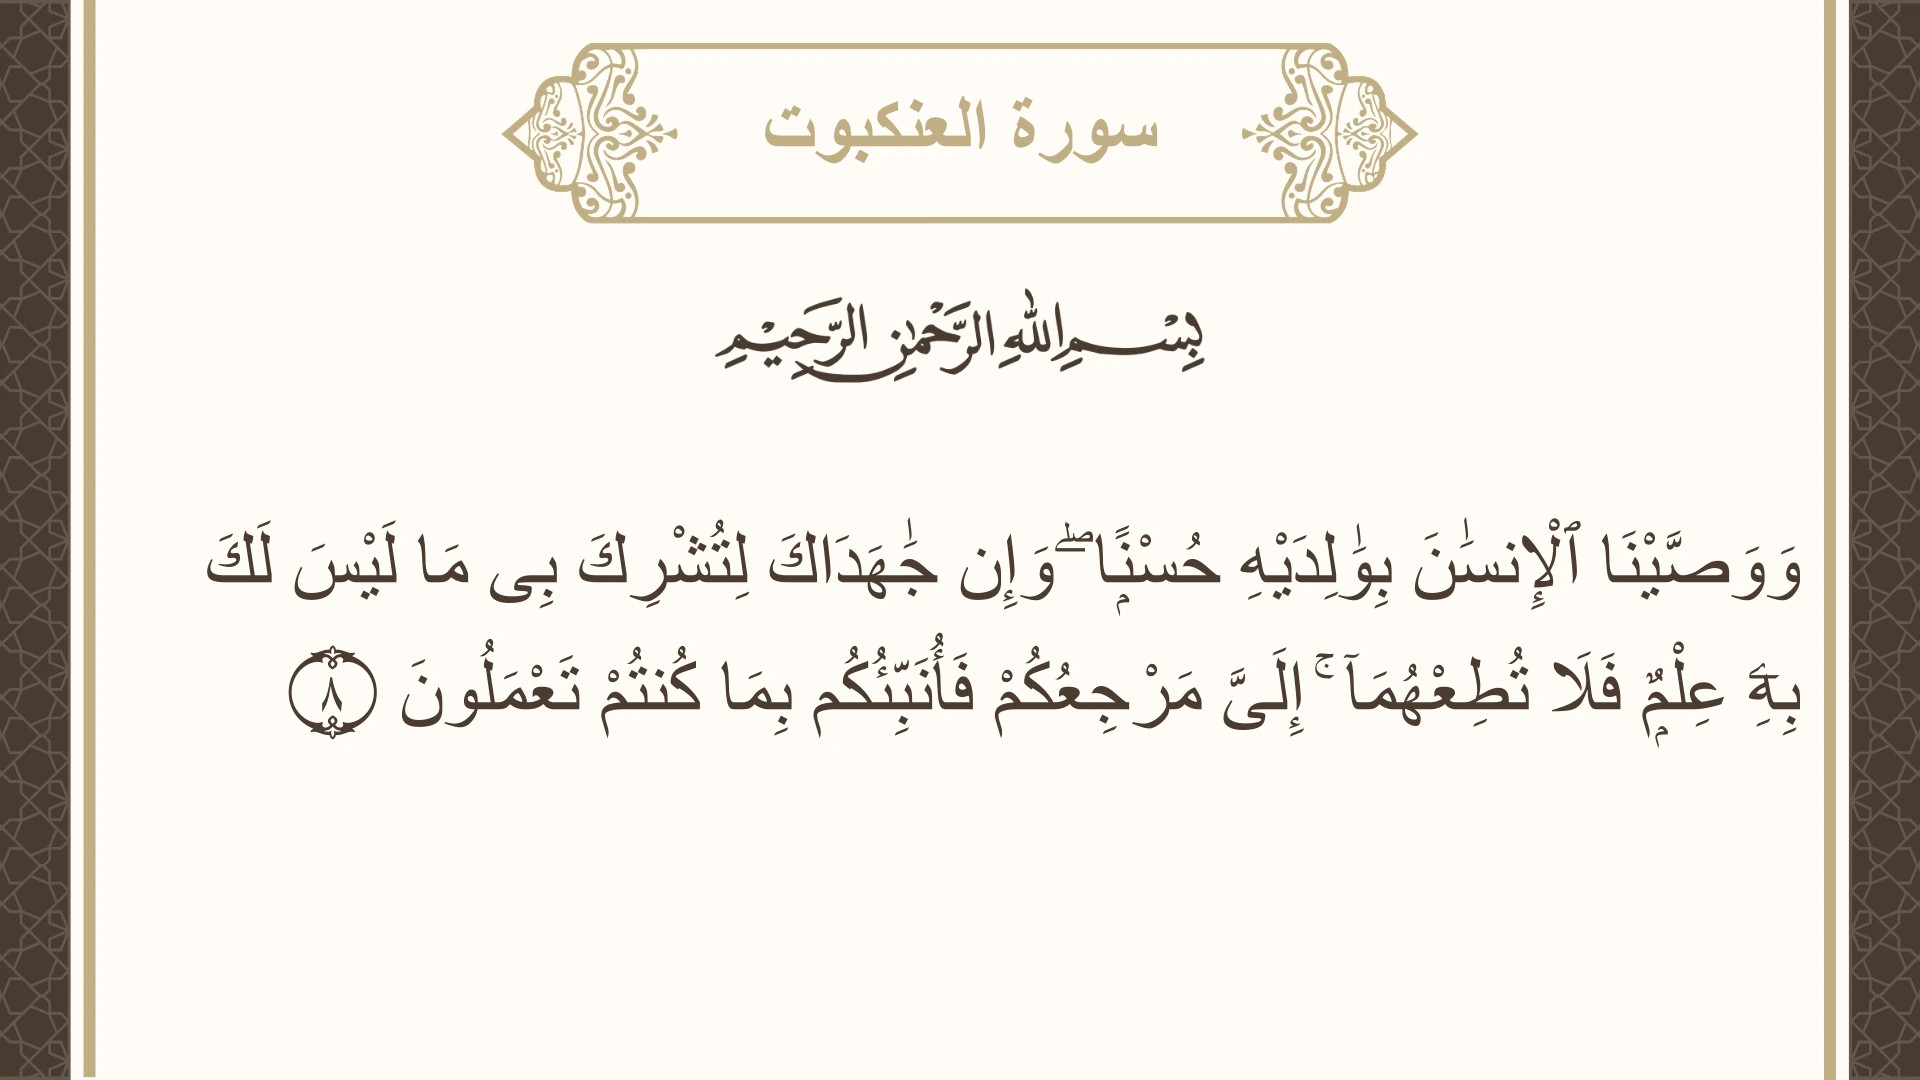 سورة العنكبوت
بِسْمِ اللهِ الرَّحْمٰنِ الرَّحِيْمِ
وَوَصَّيْنَا ٱلْإِنسَٰنَ بِوَٰلِدَيْهِ حُسْنًۭا ۖ وَإِن جَٰهَدَاكَ لِتُشْرِكَ بِى مَا لَيْسَ لَكَ
بِهِۦ عِلْمٌۭ فَلَا تُطِعْهُمَآ ۚ إِلَىَّ مَرْجِعُكُمْ فَأُنَبِّئُكُم بِمَا كُنتُمْ تَعْمَلُونَ ٨